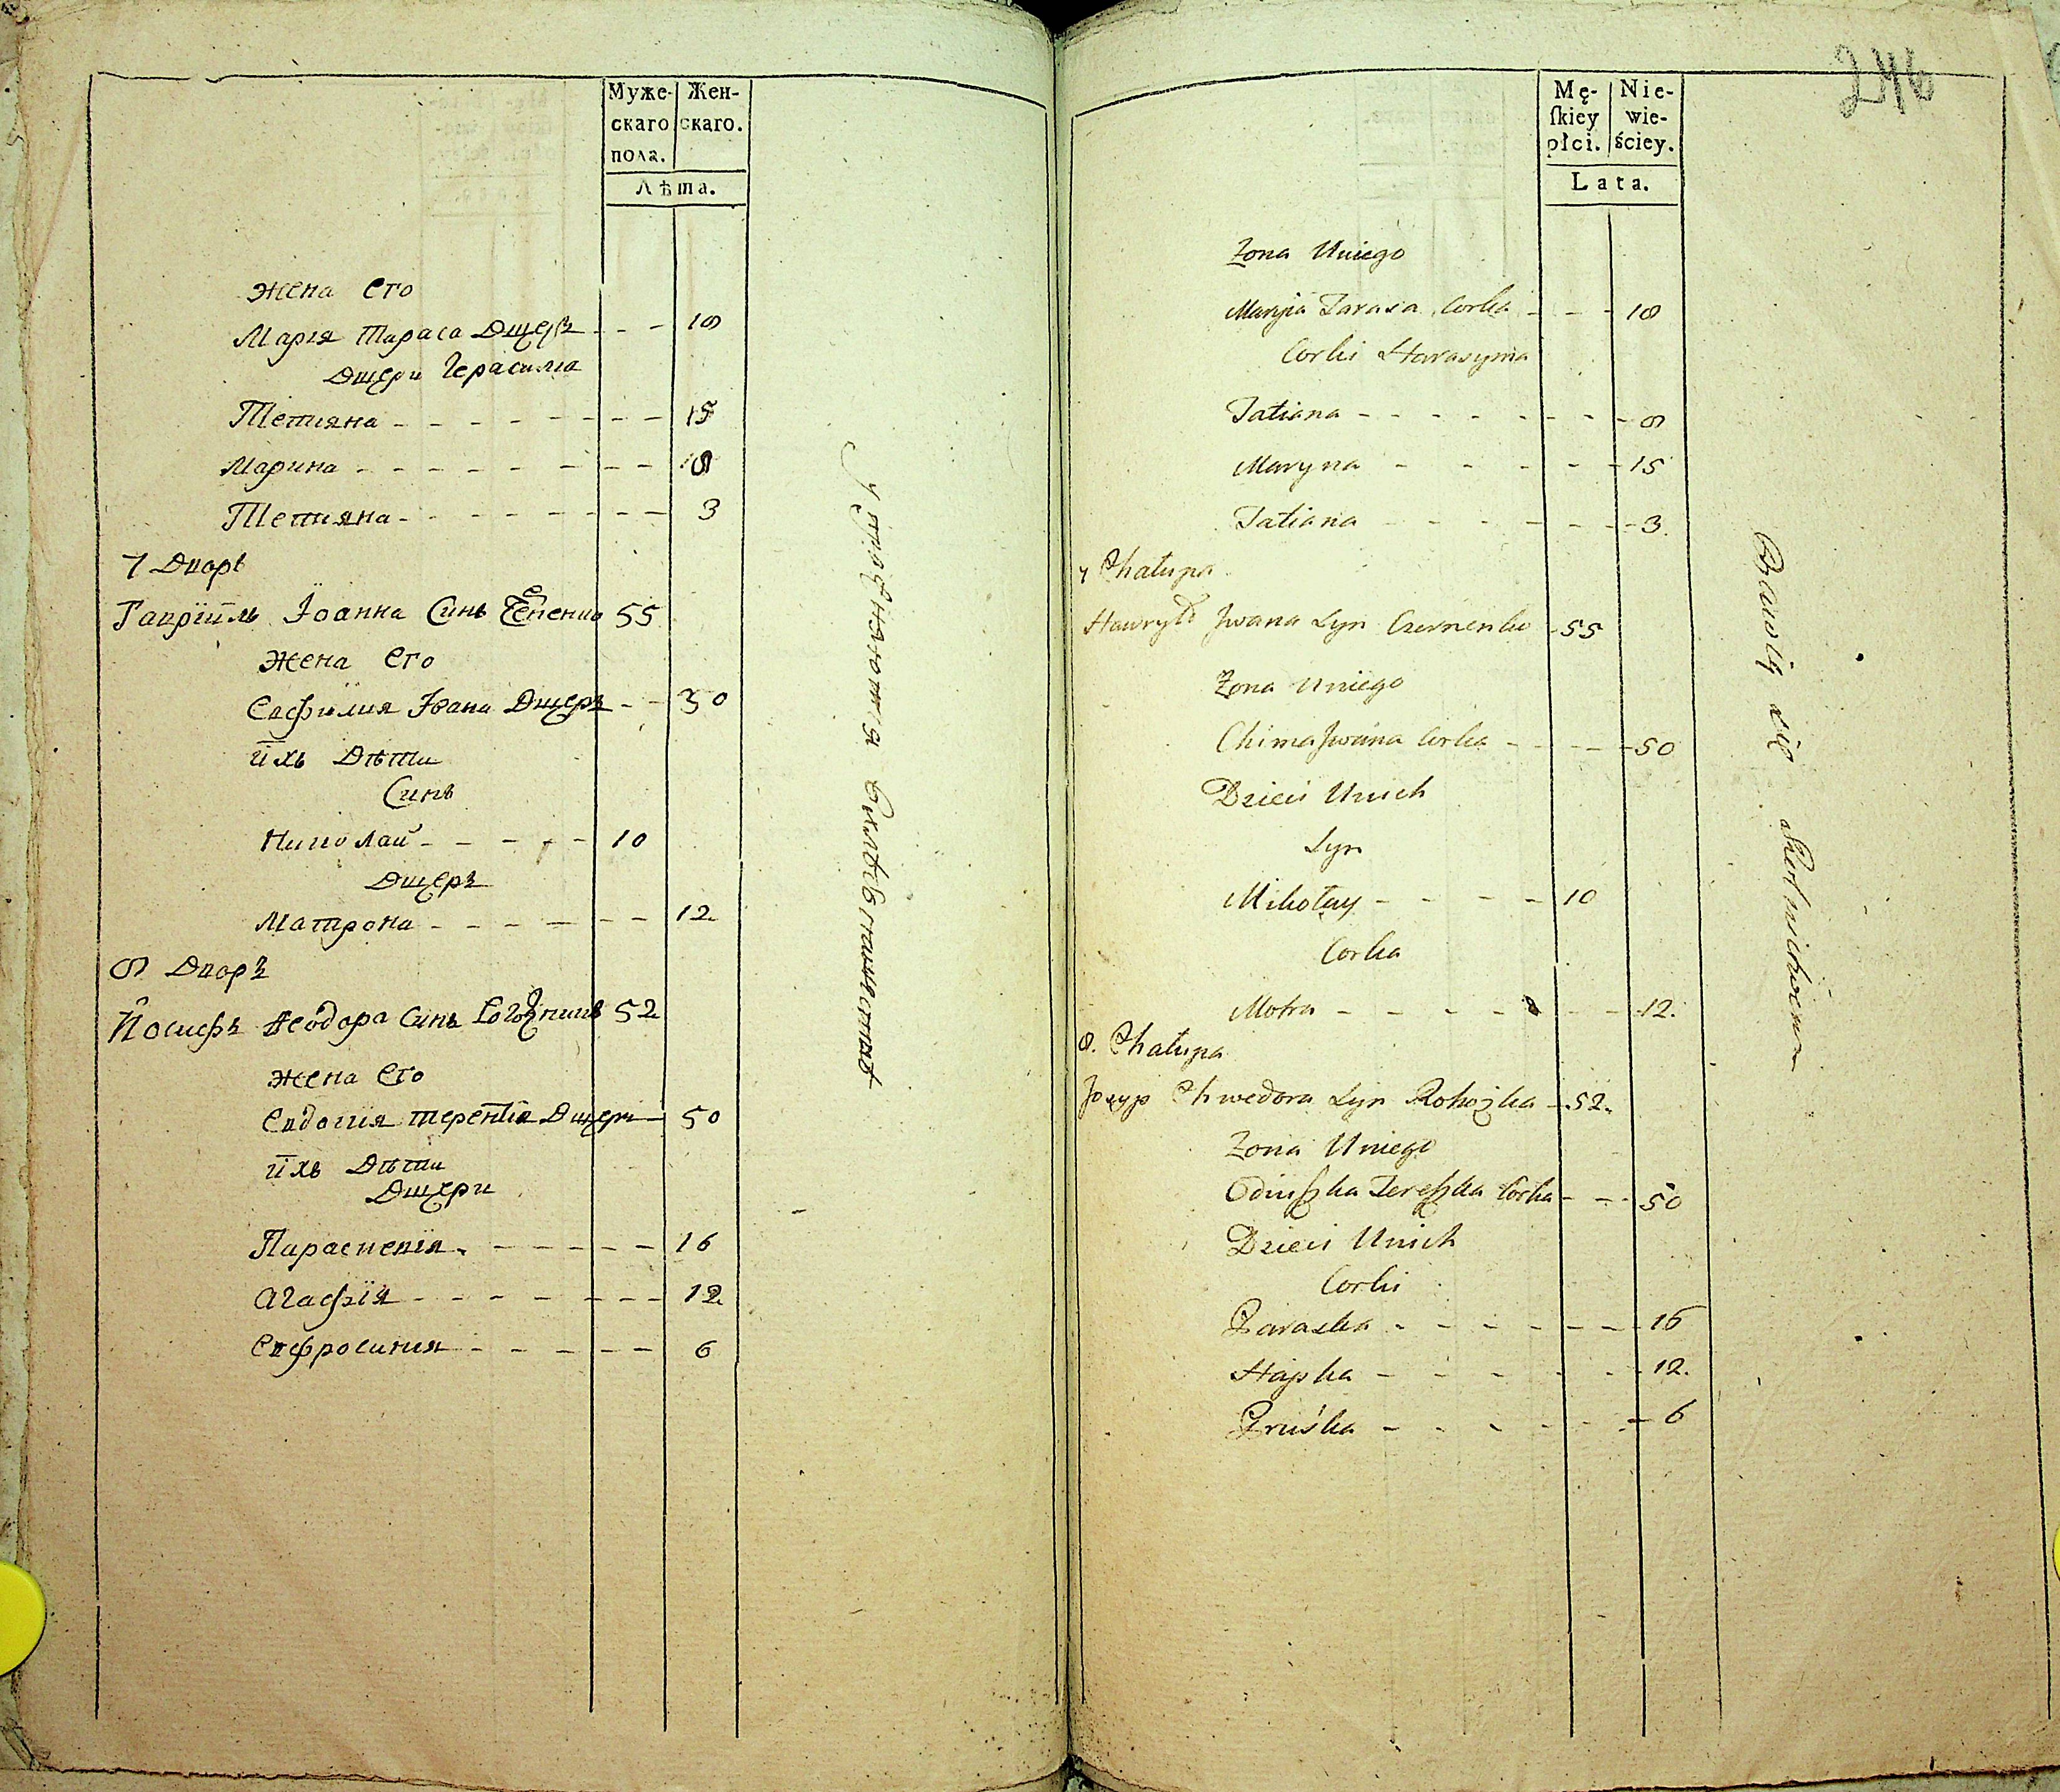 Муже-
скаго
пола.
Жен-
скаго.
Лѣта.
Жена Его
Марія Тараса Дщерь - - - 18
Дщери Герасима
Тетіяна - - - - - - - - 15
Марина - - - - - - - - 8
Тетіяна - - - - - - - - 3
7 Дворъ
Гавріилъ Іоанна Синъ 55
Жена Его
Евфимия Івана Дщеръ - - 50
ихъ Дѣти
Синъ
Николай - - - - - 10
Дщеръ
Матрона - - - - - - 12
8 Дворъ
Иосифъ Феодора Синъ 52
Жена Его
Евдокия Терентія Дщерь - 50
ихъ Дѣти
Дщери
Параскевия - - - - - - 16
Агафія - - - - - - - 12
Евфросиния - - - - - - 6
246
Mę-
ſkiey
płci.
Nie-
wie-
ściey.
Lata.
Zona Uniego
Maryia Tarasa Corka - - - 18
Corki Harasyma
Tatiana - - - - - - - - 8
Maryna - - - - - - 15
Tatiana - - - - - - - 3.
7 Chałupa
Hawryło Jwana Syn Czernenko - 55
Zona Uniego
Chima Jwana Corka - - - - - 50
Dzieci Unich
Syn
Mikołay - - - - - 10
Corka
Motra - - - - - - - - 12.
8. Chałupa
Josyp Chwedora Syn Rohozka - 52.
Zona Uniego
Odiuſzka Tereſzka Corka - - - 50
Dzieci Unich
Corki
Paraska - - - - - - - - 16
Hapka - - - - - - - 12.
Pruśka - - - - - - 6
Bawią się Rolnictwem